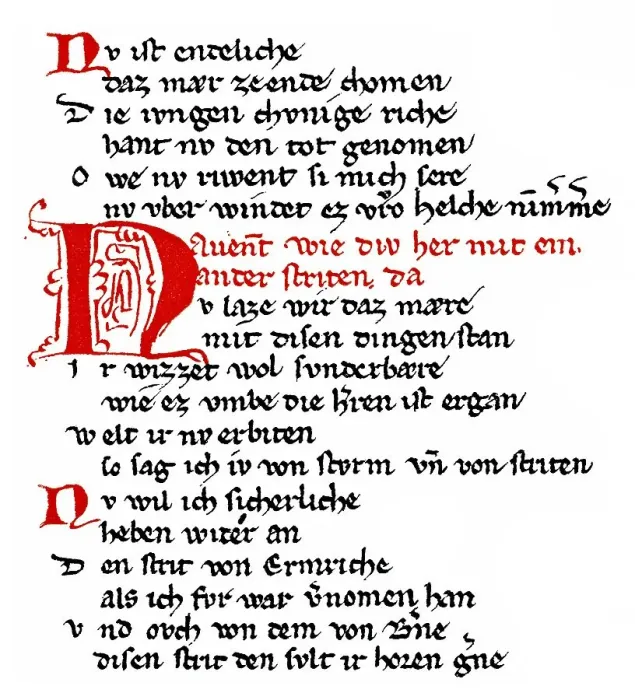 Nv ist endeliche
daz mær ze ende chomen
Die ivngen chvnige riche
hant nv den tot genomen
Owe nv riwent si mich sere
nv vber windet ez vro helche nimmͤe
Auent̄ wie div her mit ein.
ander striten. da
Nv laze wir daz mære
mit disen dingen stan
Ir wizzet wol svnderbære
wie ez vmbe die h̄ren ist ergan
Welt ir nv erbiten
so sag ich iv von stvrm vn̄ von striten
Nv wil ich sicherliche
heben wider an
Den strit von Ermriche
als ich fvr war v̄nomen han
Vnd ovch von dem von B̄ne
disen strit den svlt ir horen ḡne